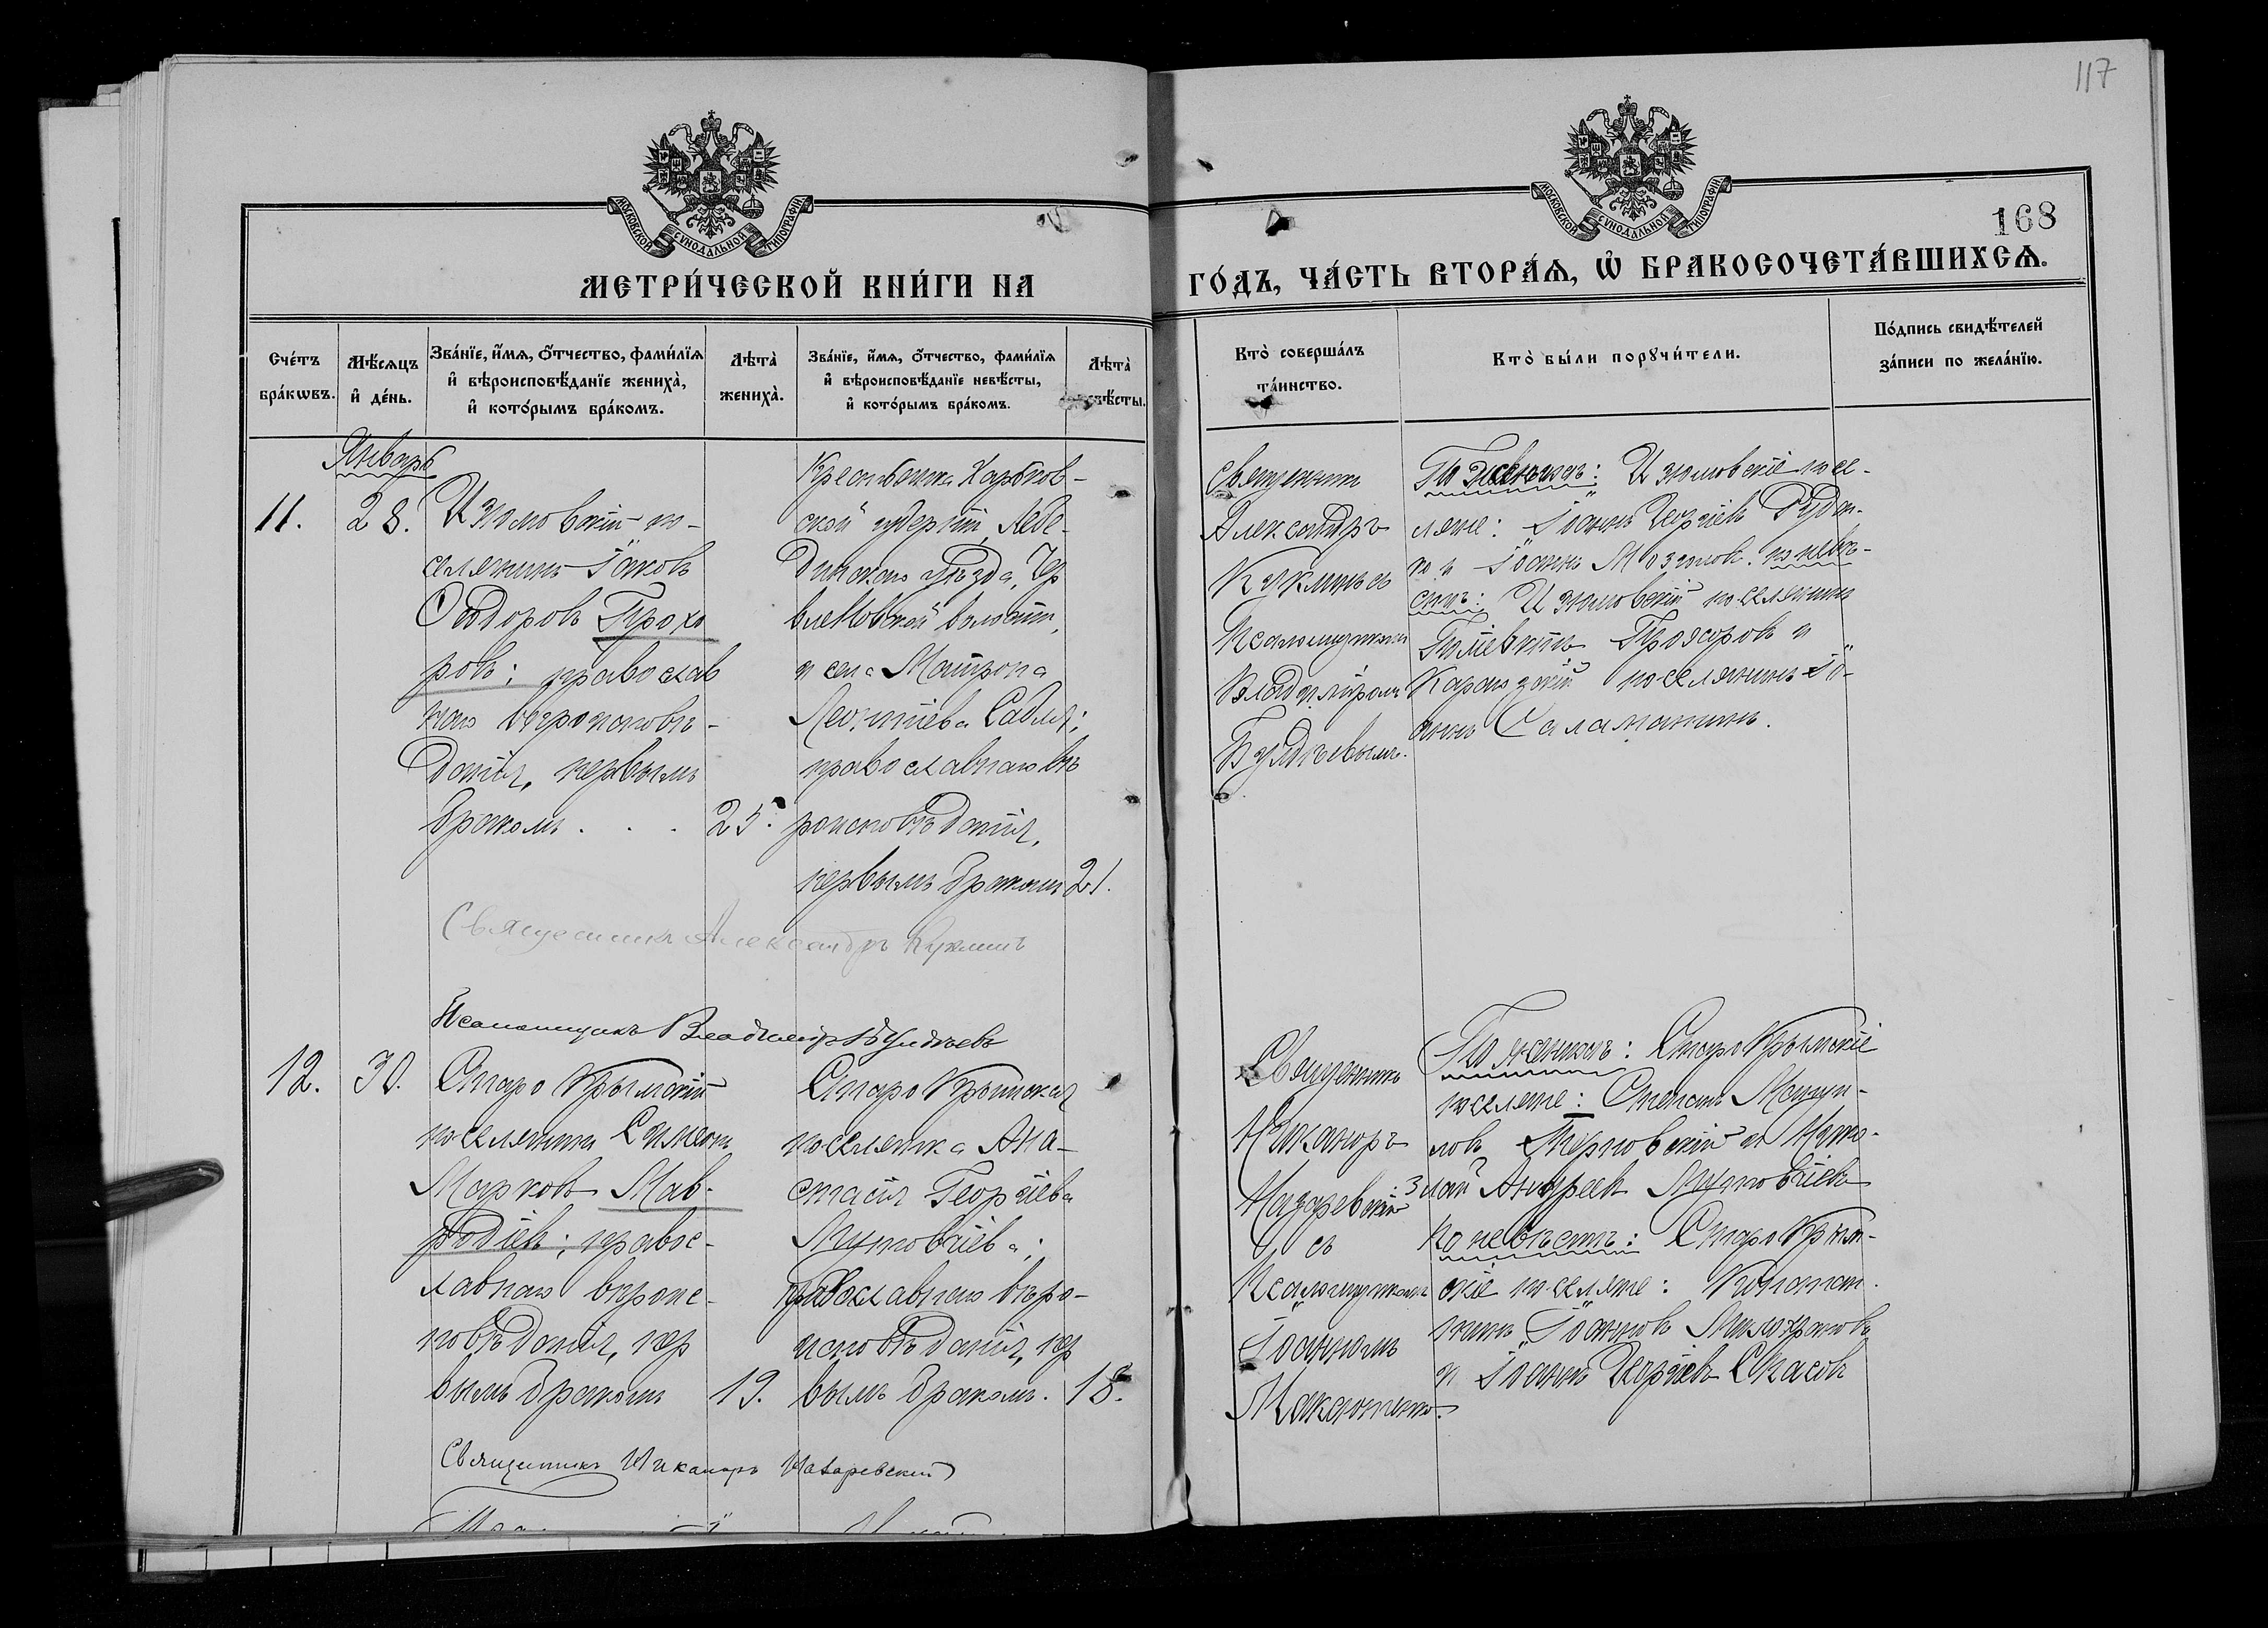 117
МОСКОВСКОЙ СѴНОДАЛЬНОЙ ТИПОГРАФІИ
МОСКОВСКОЙ СѴНОДАЛЬНОЙ ТИПОГРАФІИ
168
МЕТРИ́ЧЕСКОЙ КНИ́ГИ НА
ГО́ДЪ, ЧА́СТЬ ВТОРА́Ѧ, Ѽ БРАКОСОЧЕТА́ВШИХСѦ.
Сче́тъ
бра́кѡвъ.
Мѣ́сѧцъ
и҆ де́нь.
Зва́нїе, и҆́мѧ, ѻ҆́тчество, фами́лїѧ
и҆ вѣроисповѣ́данїе жениха̀,
и҆ кото́рымъ бра́комъ.
Лѣ́та̀
жениха̀.
Зва́нїе, и҆́мѧ, ѻ҆́тчество, фами́лїѧ
и҆ вѣроисповѣ́данїе невѣ́сты,
и҆ кото́рымъ бра́комъ.
Лѣ́та̀
невѣ́сты.
Кто̀ соверша́лъ
та́инство.
Кто̀ бы́ли порꙋчи́тели.
По́дпись свидѣ́телей
за́писи по жела́нїю.
Январь
11.
28.
Изюмовскій по-
селянинъ Іаковъ
Ѳеодоровъ Прохо
ровъ; православ
наго вѣроисповѣ-
данія, первымъ
бракомъ . . .
25.
Крестьянка Харьков-
ской губерніи, Лебе-
динскаго уѣзда,
волости,
и села Матрона
Леонтіева Сабля;
православнаго вѣ
роисповѣданія,
первымъ бракомъ
21.
Священникъ
Александръ
Куклинъ съ
Псаломщикомъ
Владиміромъ
Гулдѣевымъ.
По женихѣ: Изюмовскіе посе-
ляне: Іоаннъ Георгіевъ
и Іоаннъ Мозговъ. по невѣ-
стѣ: Изюмовскій поселянинъ
Прохоровъ и
поселянинъ Іо-
аннъ Саламатинъ.
Священникъ Александръ Куклинъ
Псаломщикъ Владиміръ Гулдѣевъ
12.
30.
Старо Крымскій
поселянинъ Симеонъ
Марковъ Мав-
родіевъ; правос-
лавнаго вѣроис-
повѣданія, пер
вымъ бракомъ
19.
Старо Крымская
поселянка Ана-
стасія Георгіева
православнаго вѣро-
исповѣданія, пер
вымъ бракомъ.
18.
Священникъ
Никаноръ
Назаревскій
съ
Псаломщикомъ
Іоанномъ
Макаютенко.
По женихѣ: Старо Крымскіе
поселяне: Степанъ Мануи-
ловъ Терновскій и Нико-
лай Андреевъ
по невѣстѣ: Старо Крым-
скіе поселяне: Констант-
тинъ Іоанновъ
и Іоаннъ Георгіевъ Спасовъ
Священникъ Никаноръ Назаревскій